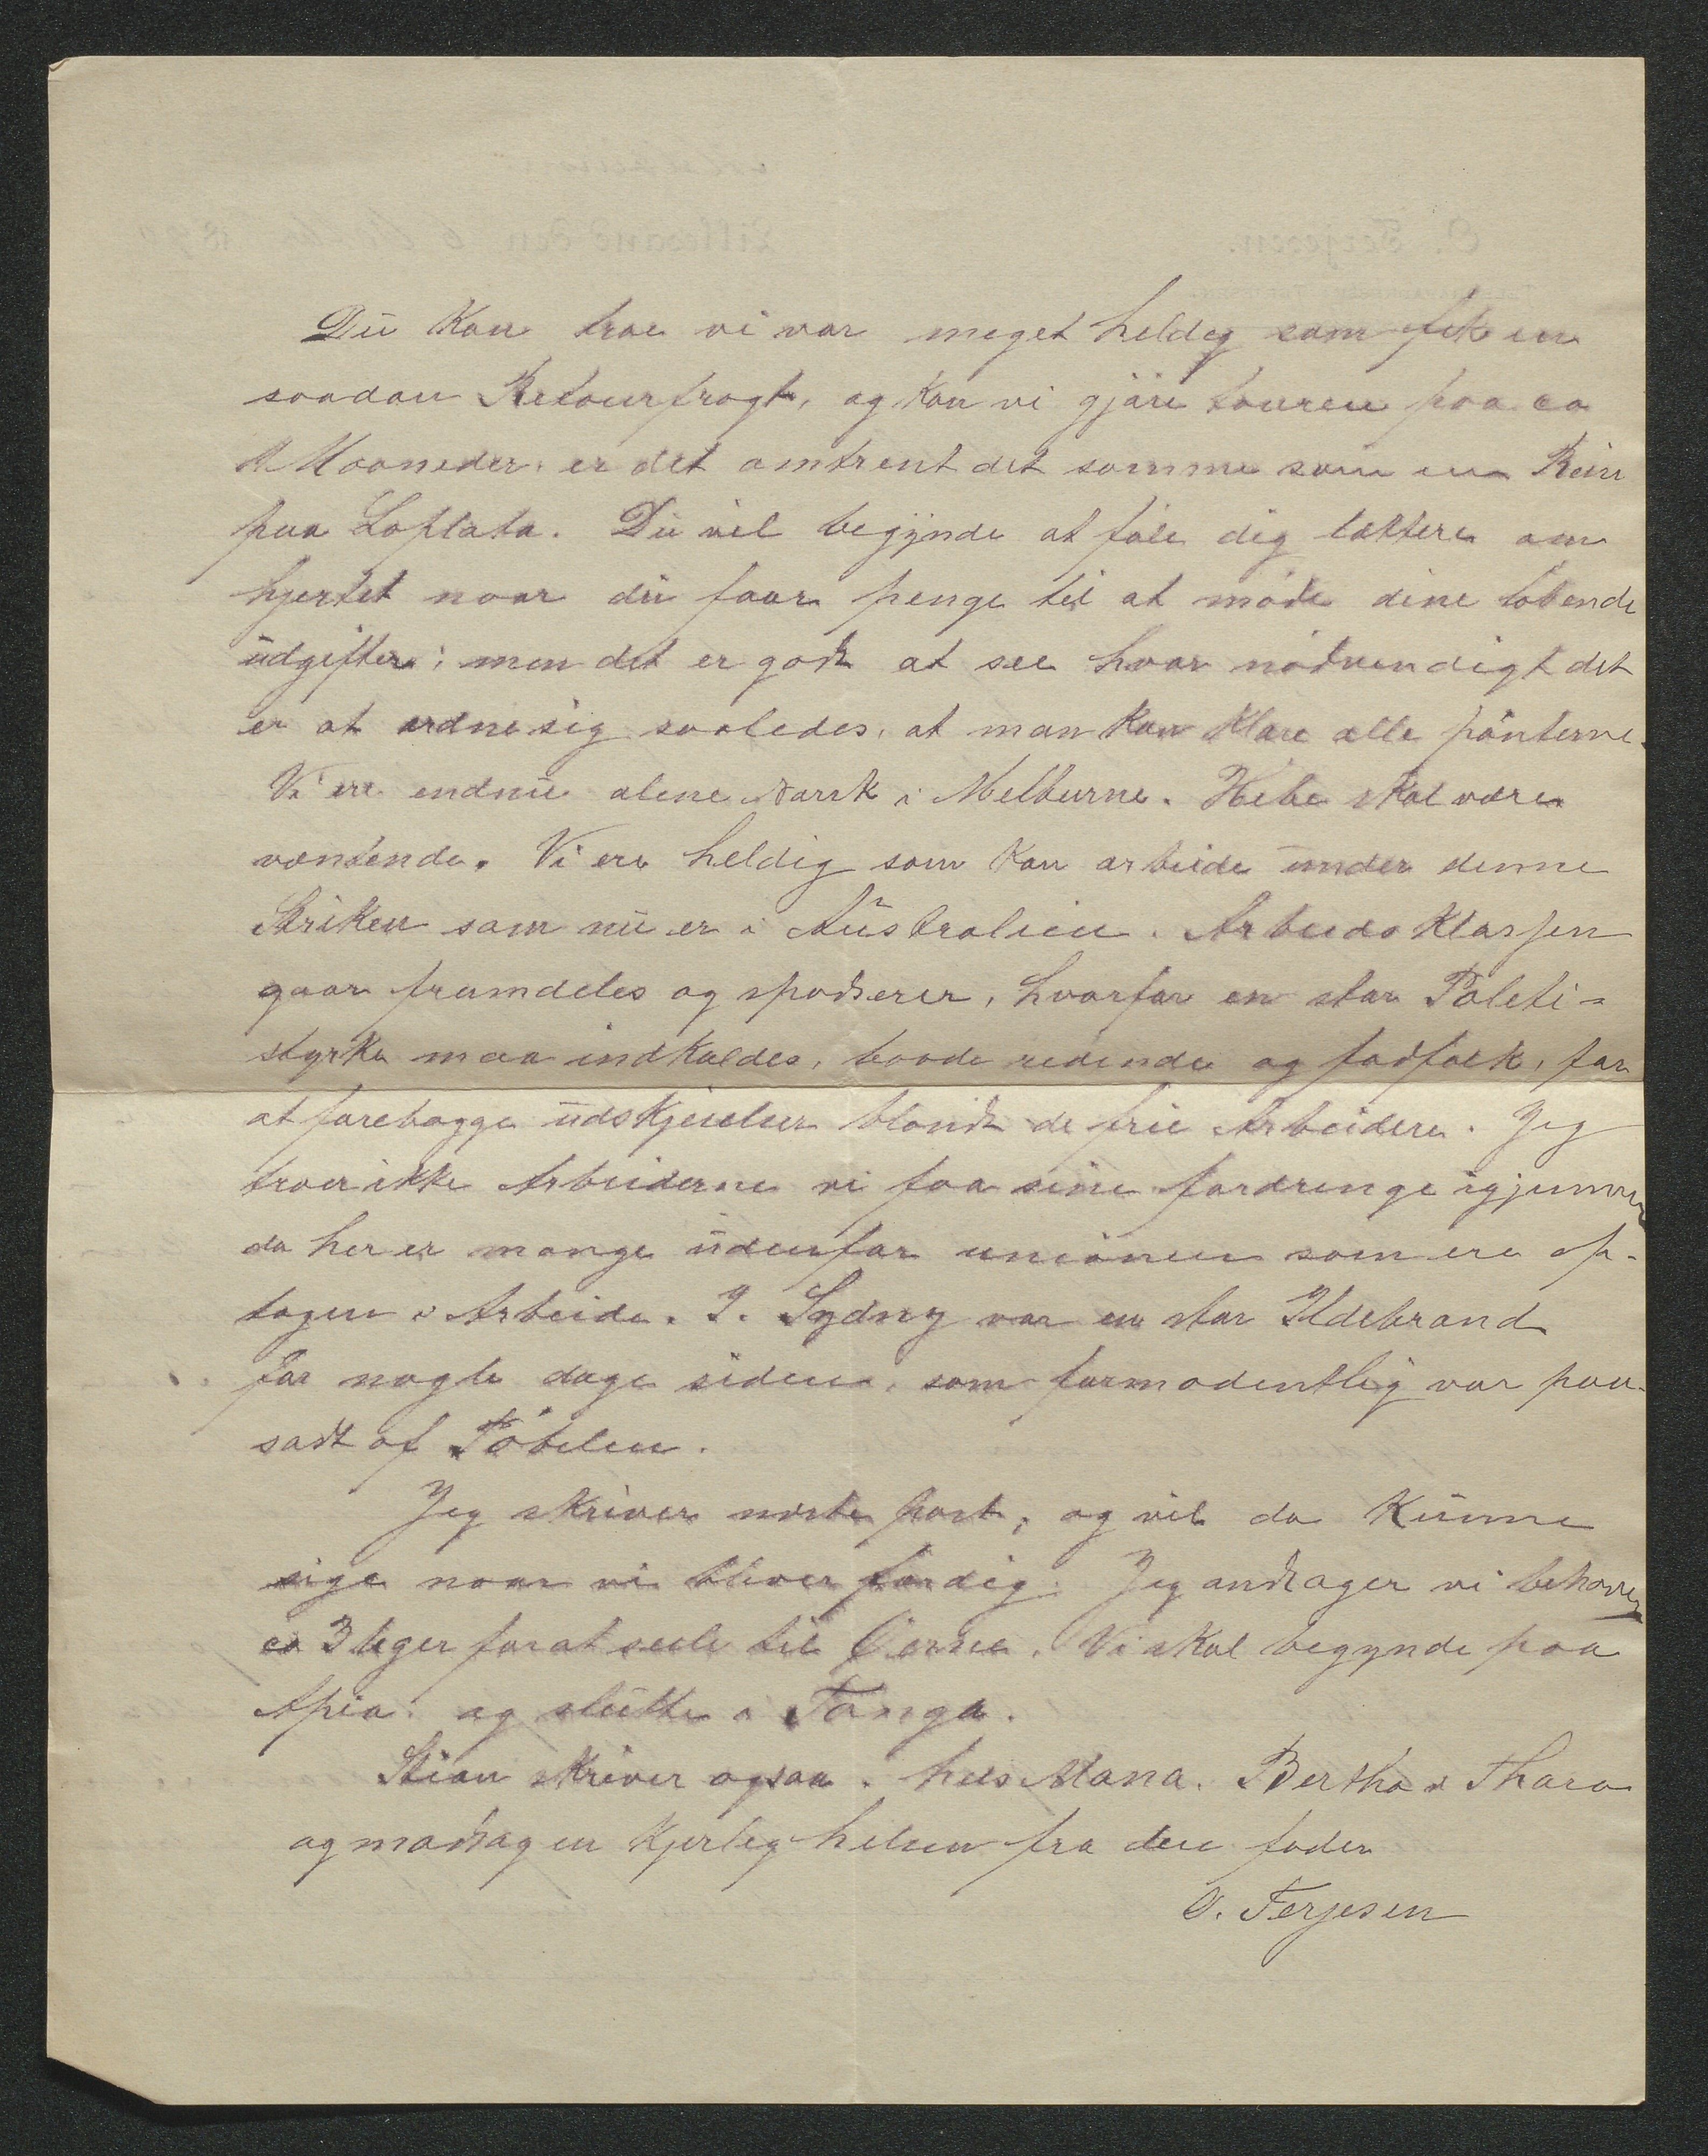 Du kan troe vi var meget heldig som fik en
saadan Retourfragt, og kan vi gjøre touren paa ca
Maaneder, er det omtrent det samme som en Reise
paa Laplata. Du vil begynde at føle dig lettere om
hjertet naar du faar penge til at møde dine løbende
udgifter; men det er godt at see hvor nødvendigt det
er at ordne sig saaledes, at man kan klare alle pønterne.
Vi ere endnu alene Norsk i Melburne. Hebe skal være
ventende. Vi ere heldig som kan arbeide under denne
Striken som nu er i Australien. Arbeidsklassen
gaar fremdeles og spadserer, hvorfor en stor Politi-
styrke maa indkaldes, baade ridende og fodfolk, for
at forebygge udskjeielser blandt de frie Arbeidere. Jeg
troer ikke Arbeiderne vi faa sine fordringe igjennem
da her er mange udenfor unionen som ere op-
tagen i Arbeide. I. Sydny var en stor Ildebrand
for nogle dage siden, som formodentlig var paa-
sadt af Pøbelen.
Jeg skriver næste post, og vil da kunne
sige naar vi bliver færdig. Jeg andtager vi behøver
ca 3 uger for at seile til Øerne. Vi skal begynde paa
Apia. og slutte i Tonga.
Stian skriver ogsaa. hils Mama. Bertha & Thora
og modtag en kjerlig hilsen fra din fader
O. Terjesen
O. Terjesen.
Lillesand den 18